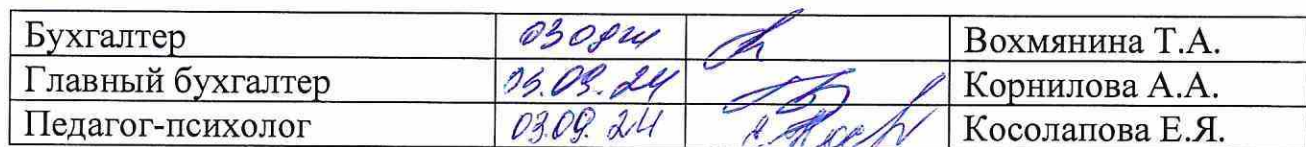 Бухгалтер 03.09.24 Вохмянина Т.А.
Главный бухгалтер 03.09.24 Корнилова А.А.
Педагог-психолог 03.09.24 Косолапова Е.Я.